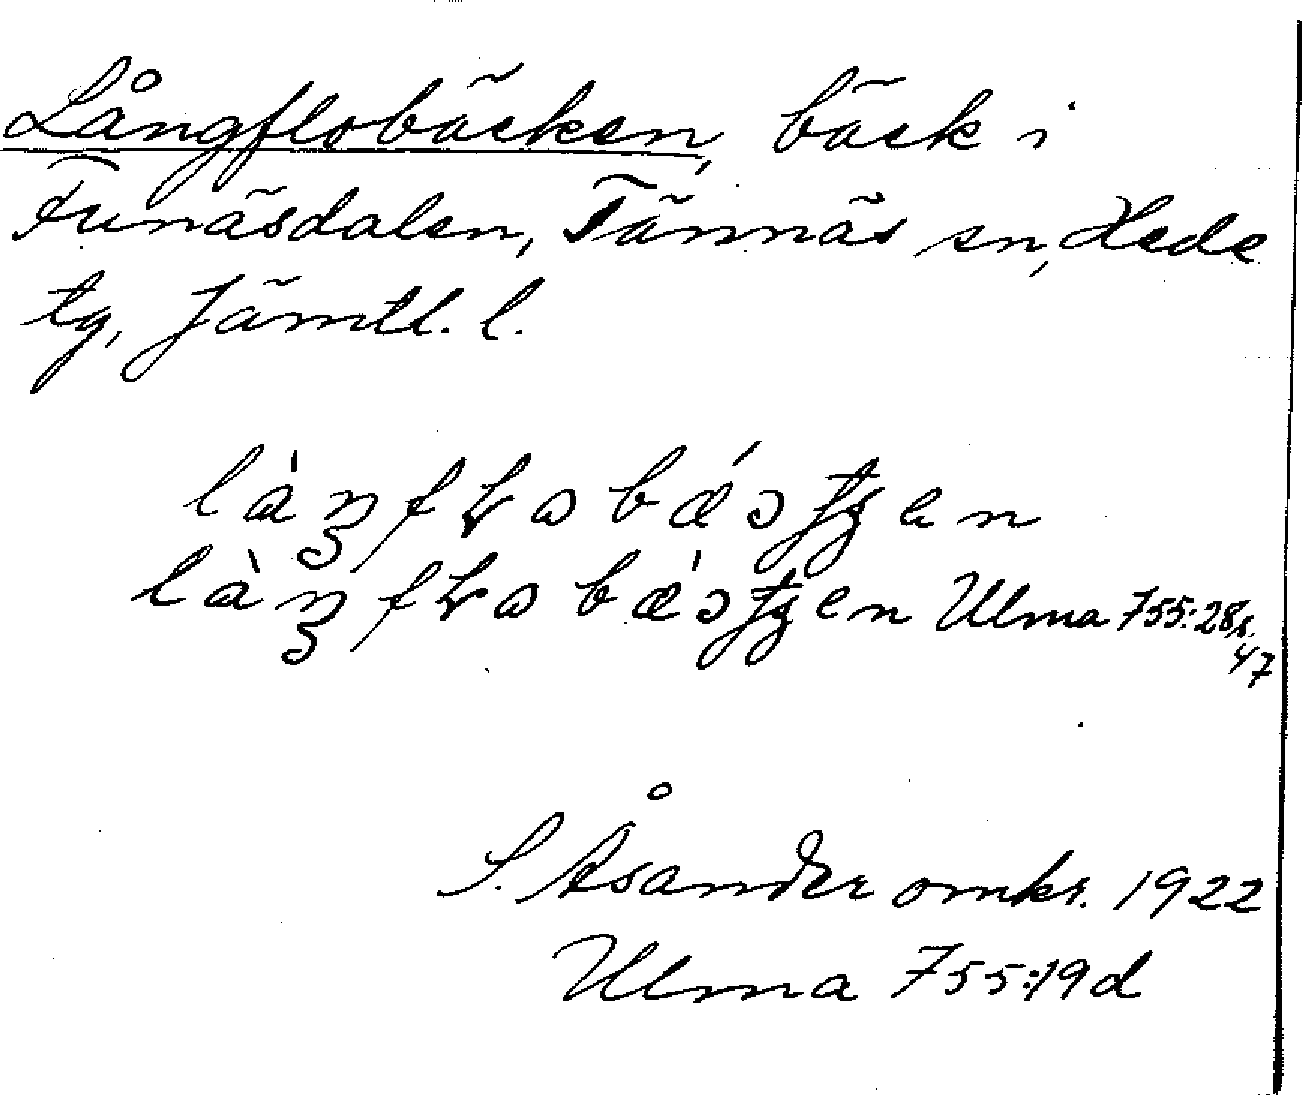 Långflobäcken, bäck i
Funäsdalen, Tännäs sn, Hede
tg, Jämtl. l.
Ulma 755:28, s.
47
S. Åsander omkr. 1922
Ulma 755:19d